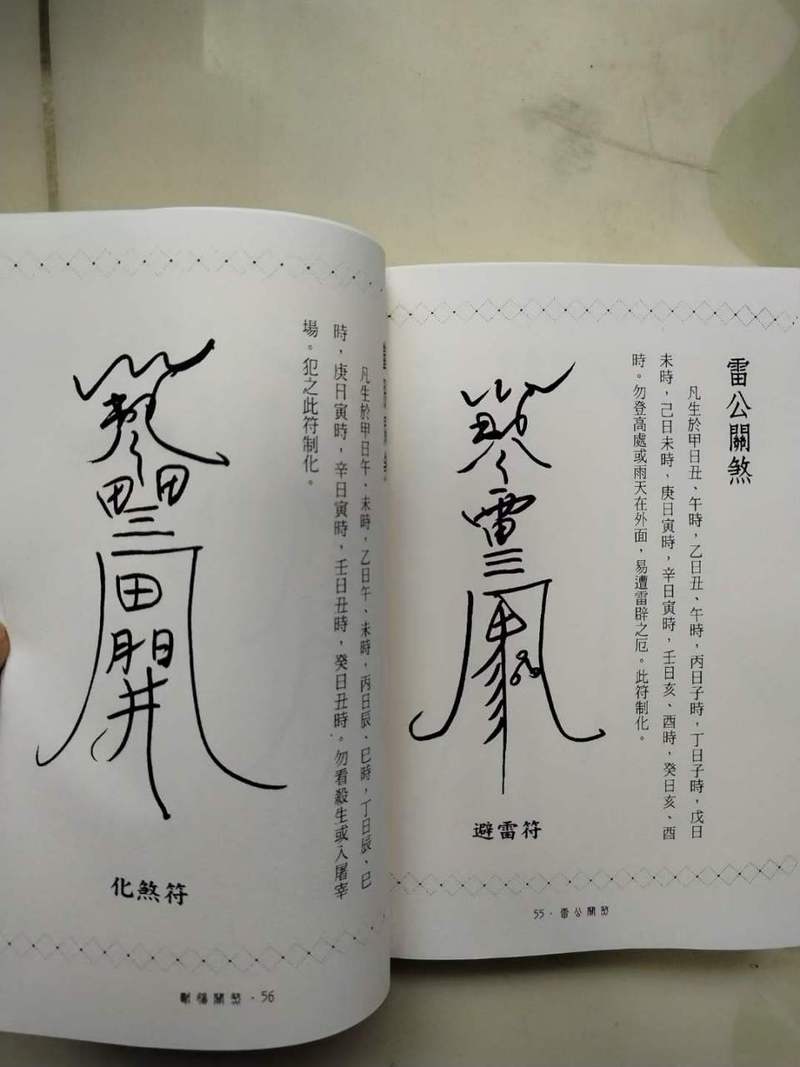 雷公關煞
凡生於甲日丑、午時，乙日丑、午時，丙日子時，丁日子時，戊日
未時，己日未時，庚日寅時，辛日寅時，壬日亥、酉時，癸日亥、酉
時。勿登高處或雨天在外面，易遭雷辟之厄。此符制化。
避雷符
55・雷公關煞
凡生於甲日午、未時，乙日午、未時，丙日辰、巳時，丁日辰、巳
時，庚日寅時，辛日寅時，壬日丑時，癸日丑時。勿看殺生或入屠宰
場。犯之此符制化。
田田
三
田
開
化煞符
斷腸關煞・56